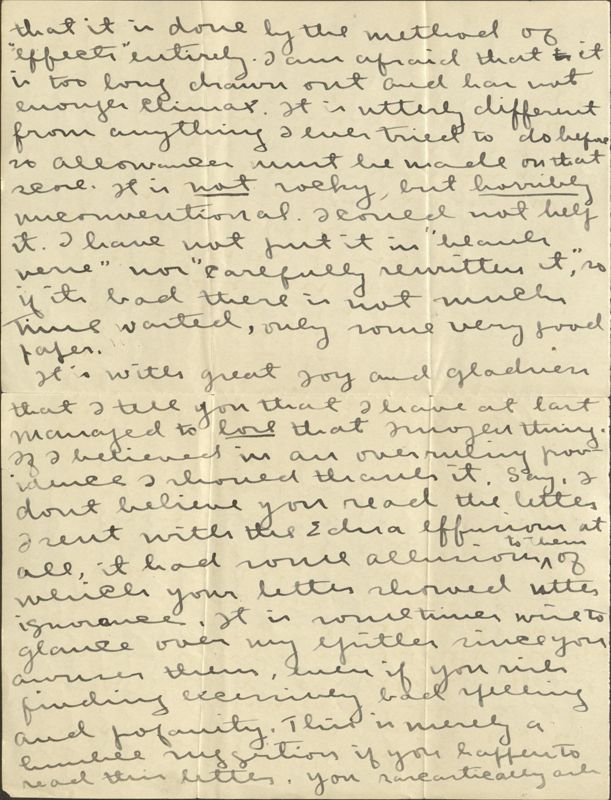 that it is done by the method of
"effects" entirely. I am afraid that it
is too long drawn out and has not
enough climax. It is utterly different
from anything I ever tried to do before
so allowances must be made on that
score. It is not rocky, but horribly
unconventional. I coured not help
it. I have not put it in "blank
verse" nor "carefully rewritten it", so
if its bad there is not much
time wasted, only some very good
paper.
It is with great joy and gladness
that I tell you that I have at last
managed to lose that Imogen thing.
If I believed in an overruling prov-
idence I shoued thank it. Say, I
dont believe you read the letter
I sent with the Edna effusion at
all, it had some allusions to them of
which your letter showed utter
ignorance. It is sometimes wise to
glance over my epistles since you
answer them, even if you risk
finding excessivey bad spelling
and pofanity. This is merely a
humble suggestion if you happen to
read this letter. You sarcastically ask